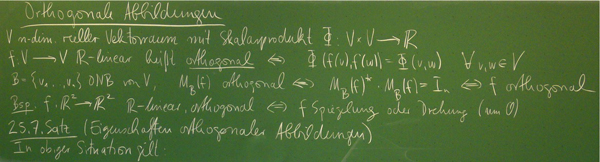 Orthogonale Abbildungen
V n-dim. reeller Vektorraum mit Skalarprodukt Φ: V×V → ℝ
f: V → V ℝ-linear heißt orthogonal ⇔ Φ(f(v), f(w)) = Φ(v,w) ∀ v,w ∈ V
B = {v₁, .., vₙ} ONB von V, M_B(f) orthogonal ⇔ M_B(f)* · M_B(f) = Iₙ ⇔ f orthogonal
Bsp. f: ℝ² → ℝ² ℝ-linear, orthogonal ⇔ f Spiegelung oder Drehung (um 0)
25.7. Satz (Eigenschaften orthogonaler Abbildungen)
In obiger Situation gilt: